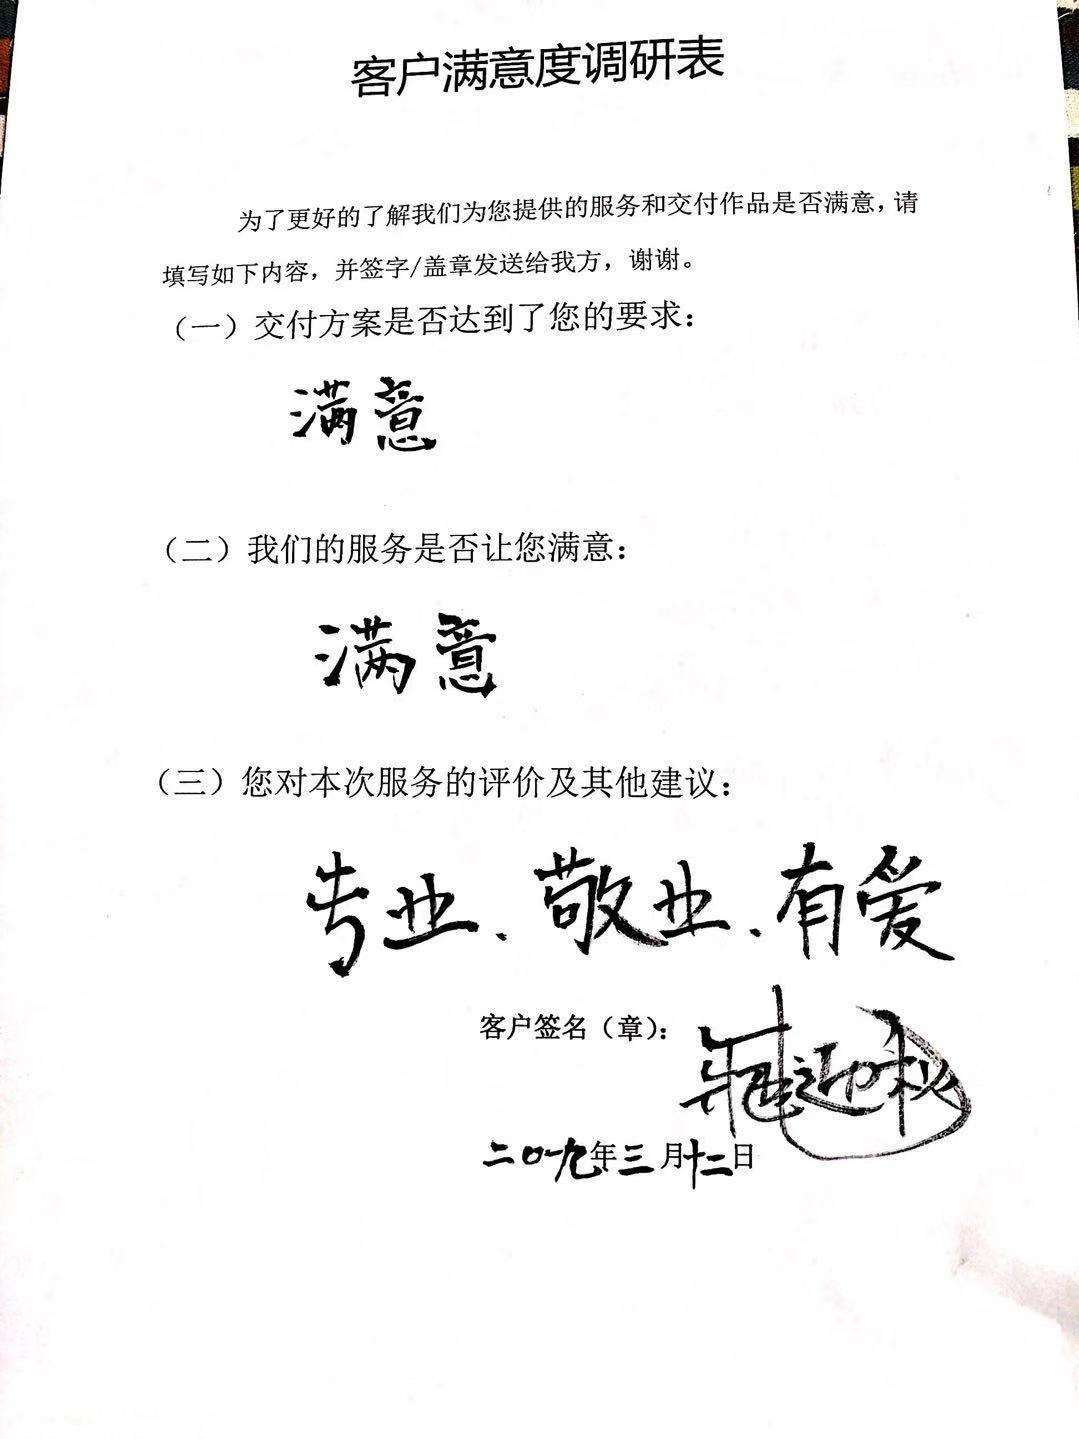 客户满意度调研表
为了更好的了解我们为您提供的服务和交付作品是否满意,请
填写如下内容,并签字/盖章发送给我方,谢谢。
(一)交付方案是否达到了您的要求:
满意
(二)我们的服务是否让您满意:
满意
(三)您对本次服务的评价及其他建议:
专业、敬业、有爱
客户签名(章):
二〇一九年三月十二日